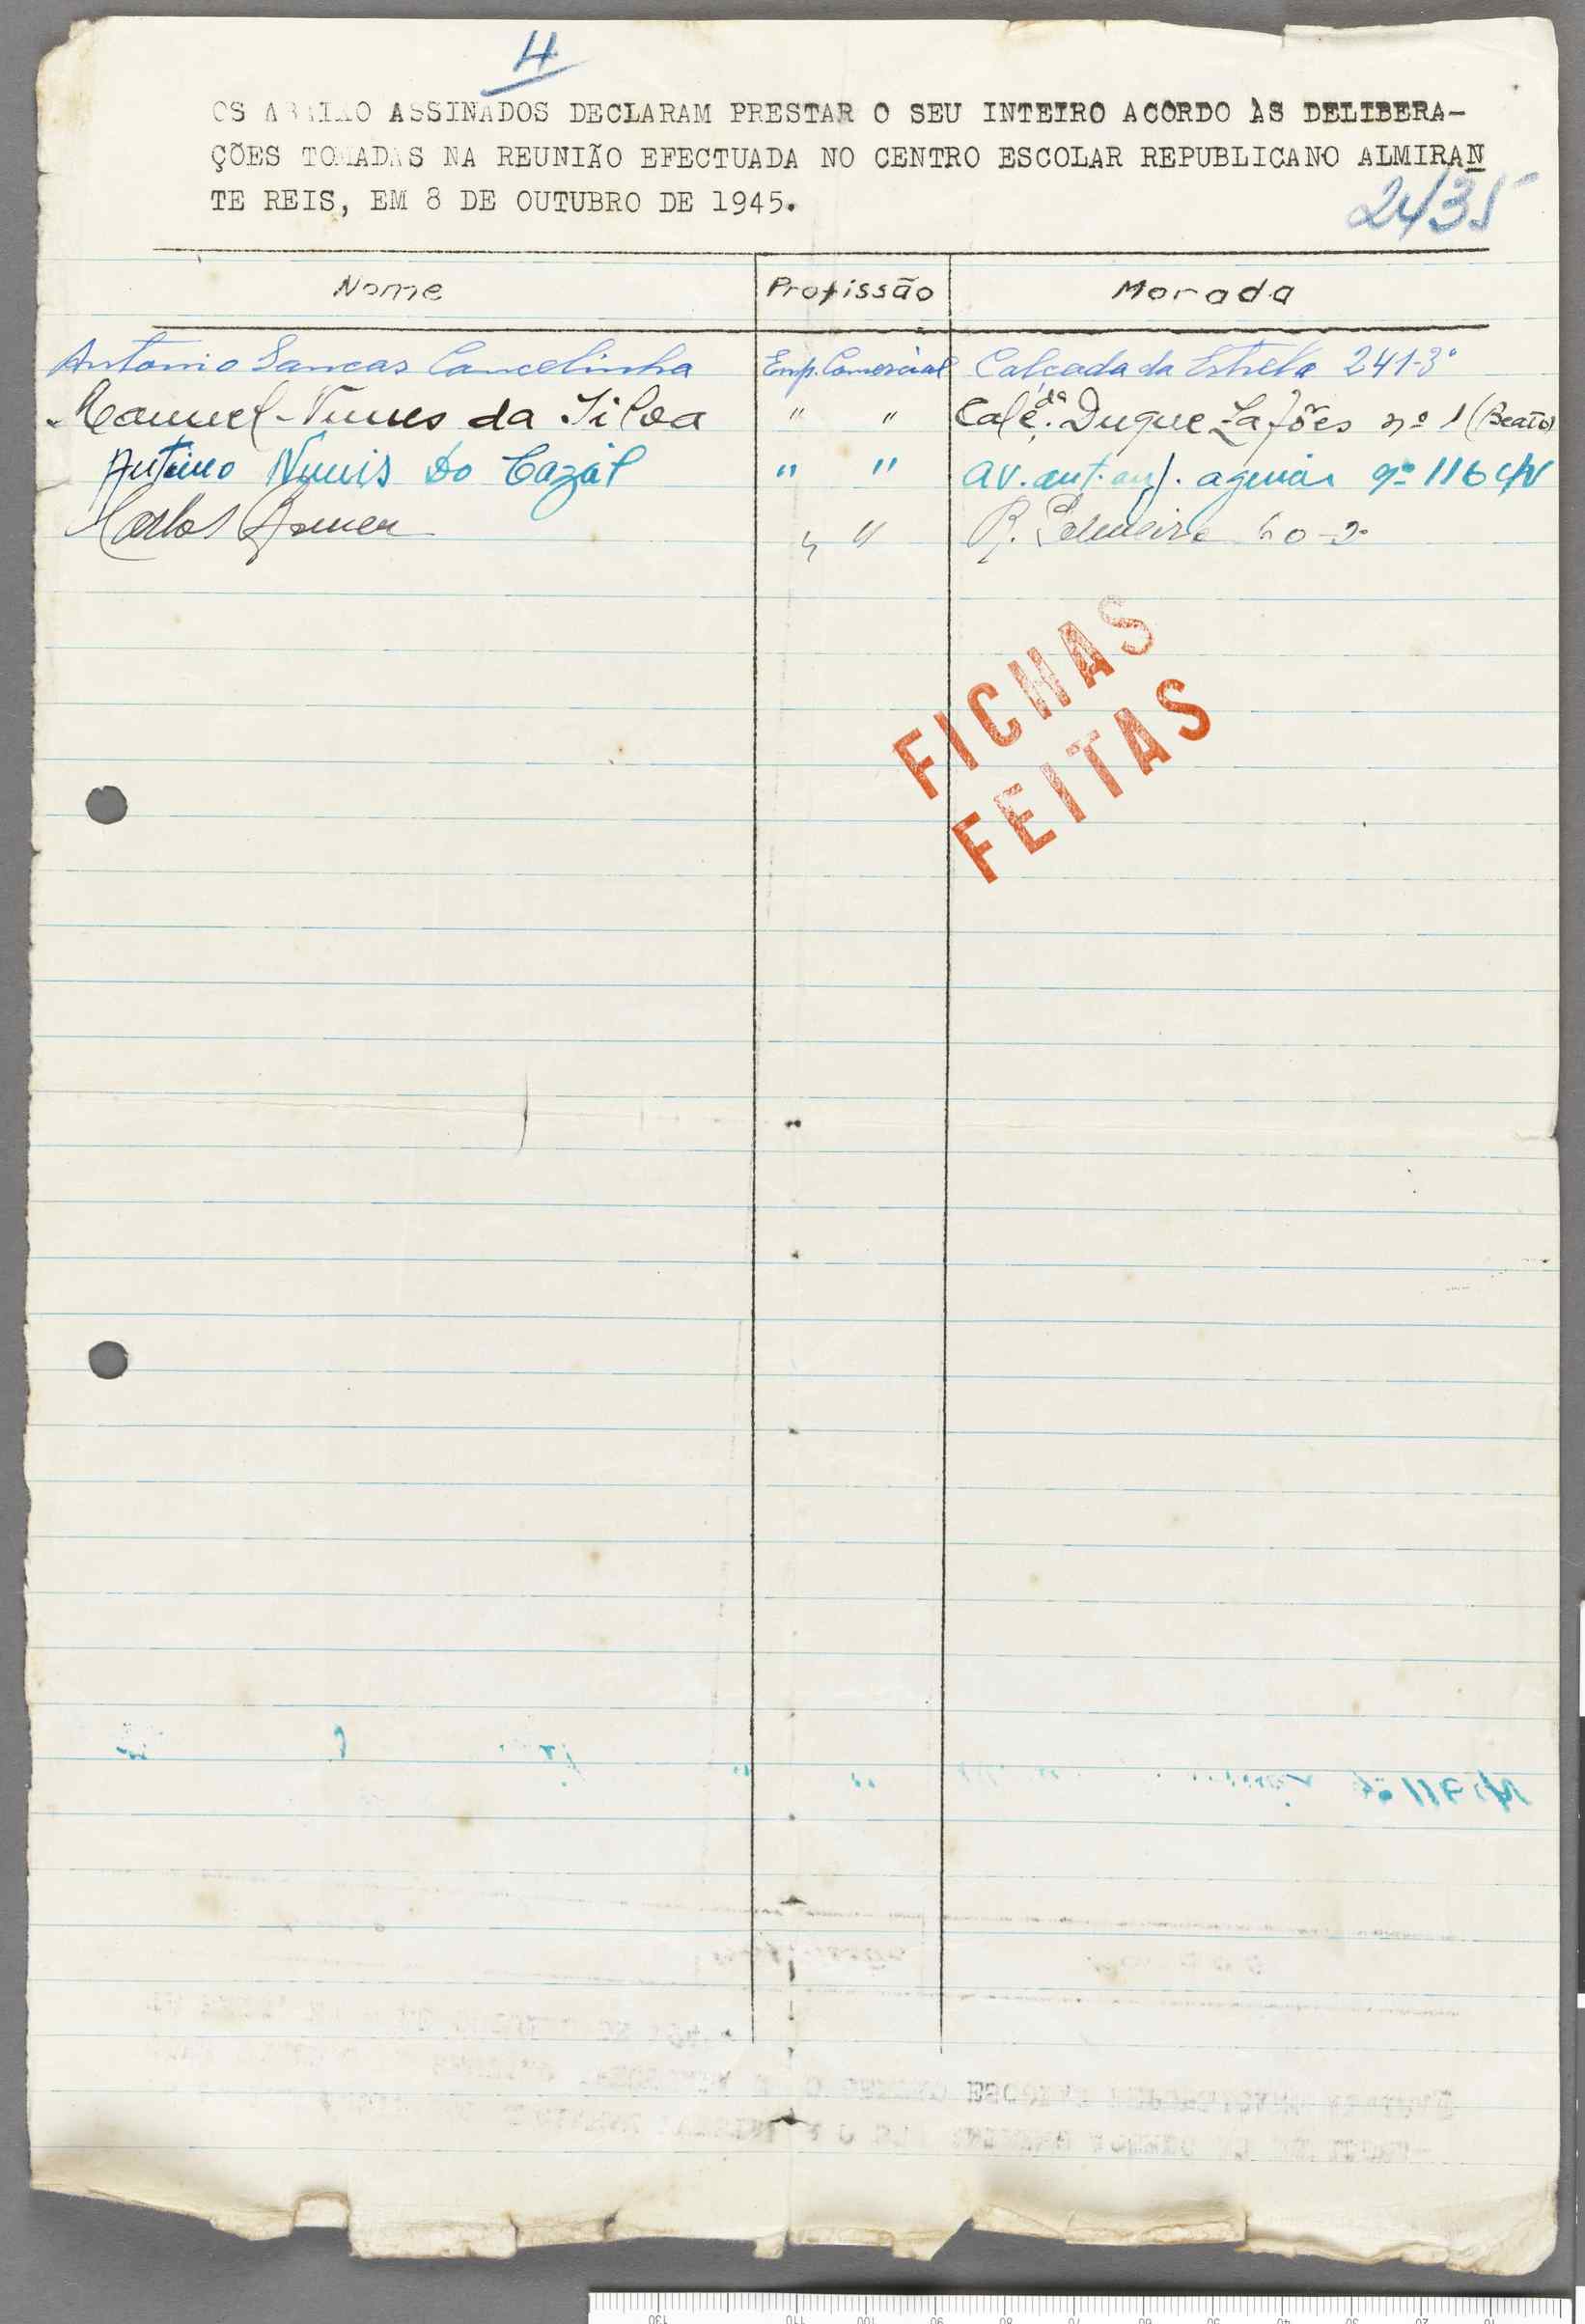 4
OS ABAIXO ASSINADOS DECLARAM PRESTAR O SEU INTEIRO ACORDO ÀS DELIBERA-
ÇÕES TOMADAS NA REUNIÃO EFECTUADA NO CENTRO ESCOLAR REPUBLICANO ALMIRAN
TE REIS, EM 8 DE OUTUBRO DE 1945.
2435
Nome Profissão Morada
Antonio Cancelinha Emp. Comercial Calçada da Estrela 241-3º
Manuel Nunes da Silva " " Calç.da Duque Lafões nº 1 (Beato)
Nunis Do Cazál " " av. ant. aug. aguiar nº 116 c/v
Carlos " " R. Palmeira 60-2º
FICHAS
FEITAS